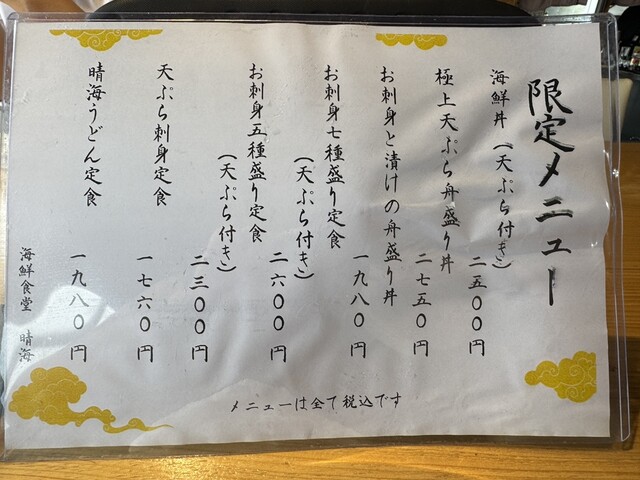 限定メニュー
海鮮丼(天ぷら付き)
二五〇〇円
極上天ぷら舟盛り丼
二七五〇円
お刺身と漬けの舟盛り丼
一九八〇円
お刺身七種盛り定食
(天ぷら付き)
二六〇〇円
お刺身五種盛り定食
(天ぷら付き)
二三〇〇円
天ぷら刺身定食
一七六〇円
晴海うどん定食
一九八〇円
海鮮食堂 晴海
メニューは全て税込です